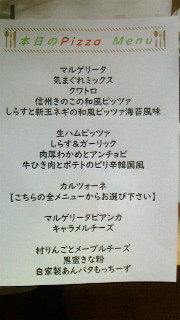 本日のPizza Menu
マルゲリータ
気まぐれミックス
クワトロ
信州きのこの和風ピッツァ
しらすと新玉ネギの和風ピッツァ海苔風味
生ハムピッツァ
しらす&ガーリック
肉厚わかめとアンチョビ
牛ひき肉とポテトのピリ辛韓国風
カルツォーネ
【こちらの全メニューからお選び下さい】
マルゲリータビアンカ
キャラメルチーズ
村りんごとメープルチーズ
黒蜜きな粉
自家製あんバタもっちーず